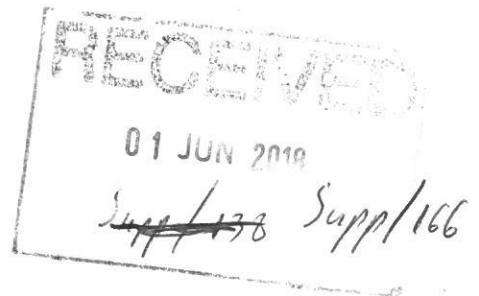 RECEIVED
01 JUN 2018
Supp/138 Supp/166